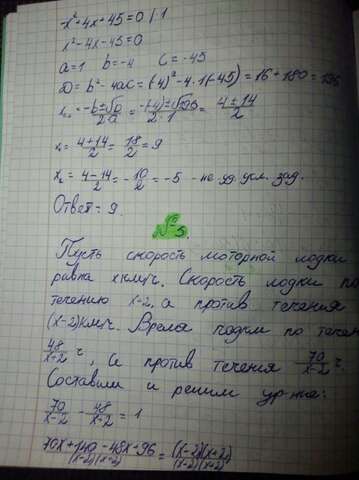 -x²+4x+45=0 |·1
x²-4x-45=0
a=1 b=-4 c=-45
D=b²-4ac=(-4)²-4·1·(-45)=16+180=196
x₁,₂=(-b±√D)/2a=(-(-4)±√196)/2·1=(4±14)/2
x₁=(4+14)/2=18/2=9
x₂=(4-14)/2=-10/2=-5 - не уд. усл. зад.
Ответ = 9.
№5.
Пусть скорость моторной лодки
равна x км/ч. Скорость лодки по
течению x-2, а против течения
(x-2)км/ч. Время лодки по течен
48/(x-2) ч, а против течения 70/(x-2) ч.
Составим и решим ур-ние:
70/(x-2) - 48/(x-2) = 1
(70x+140-48x+96)/((x-2)(x+2)) = ((x-2)(x+2))/((x-2)(x+2))